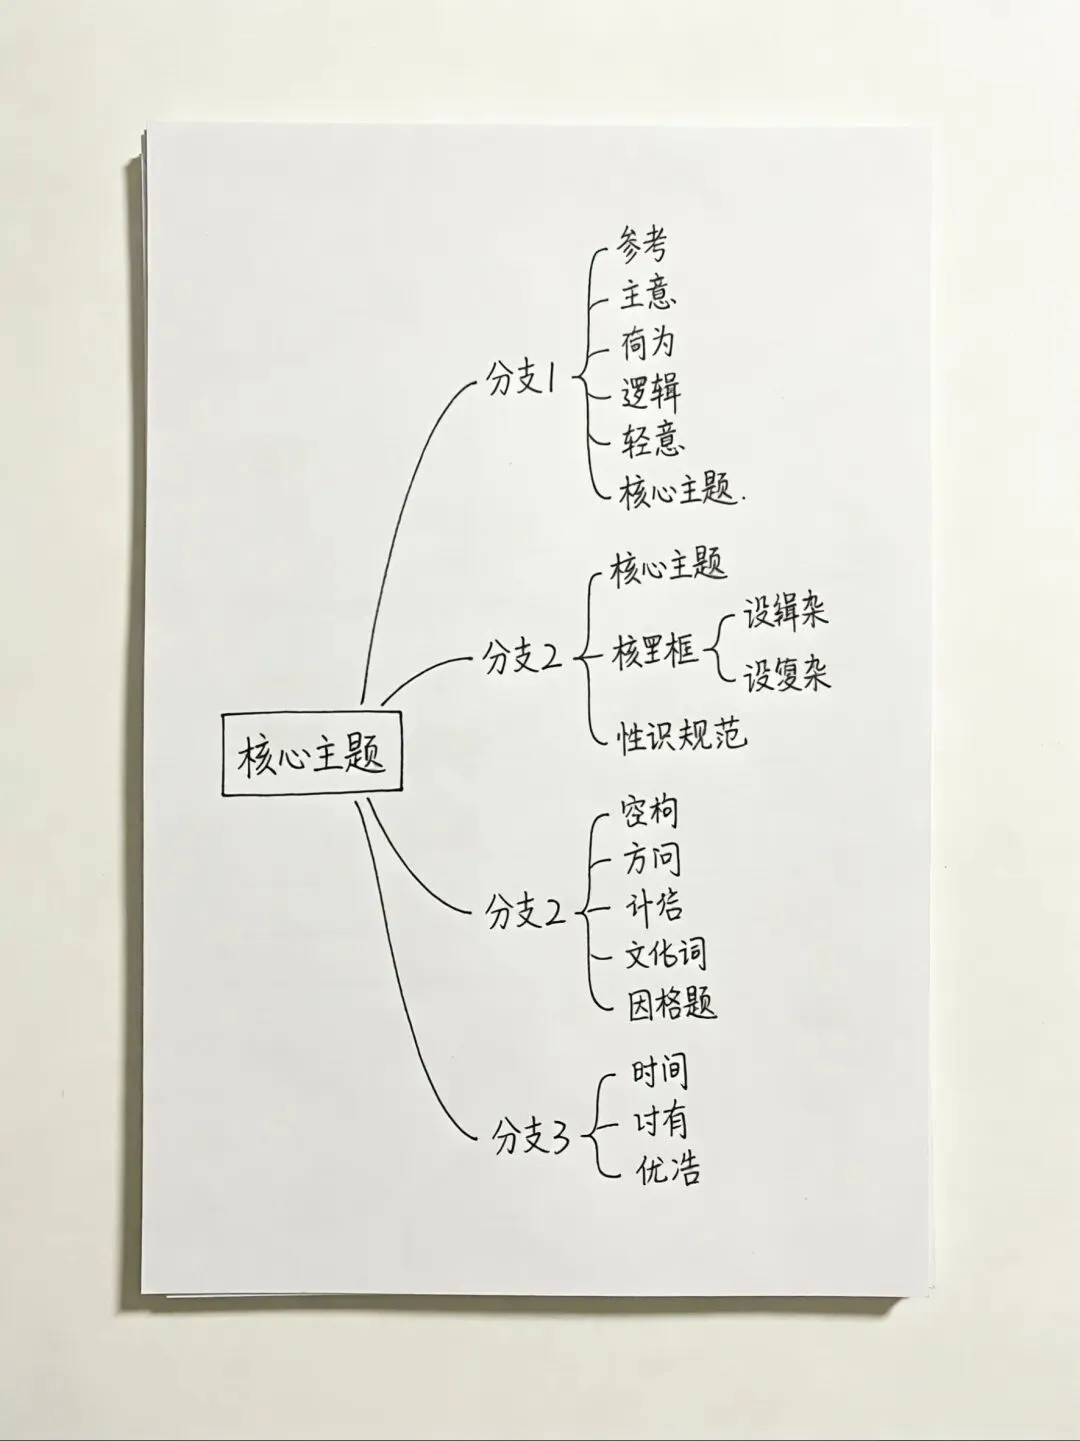 参考
主意
荷为
分支1
逻辑
轻意
核心主题.
核心主题
设缉杂
分支2
核里框
设复杂
性识规范
核心主题
空枸
方问
计信
分支2
文化词
因格题
时间
讨有
分支3
优浩